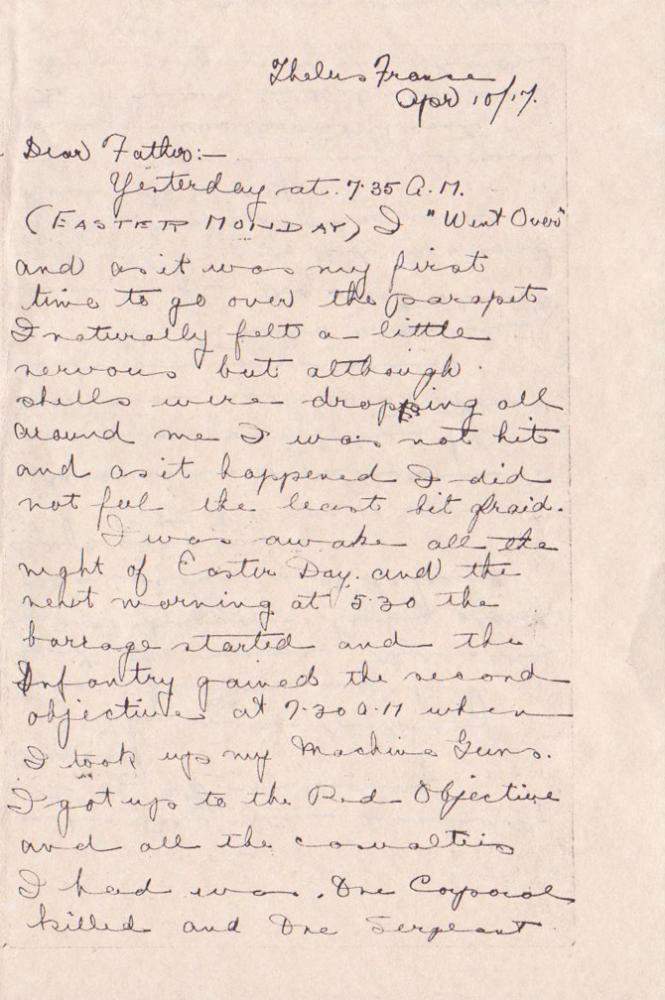 Thelus France
Apr 10/17.
Dear Father:—
Yesterday at 7.35 A.M.
(EASTER MONDAY) I "Went Over"
and as it was my first
time to go over the parapet
I naturally felt a little
nervous but although
shells were dropping all
around me I was not hit
and as it happened I did
not feel the least bit afraid.
I was awake all the
night of Easter Day. and the
next morning at 5.30 the
barrage started and the
Infantry gained the second
objective at 7.30 a.m when
I took up my Machine Guns.
I got up to the Red Objective
and all the casualties
I had was. One Corporal
killed and One Sergeant